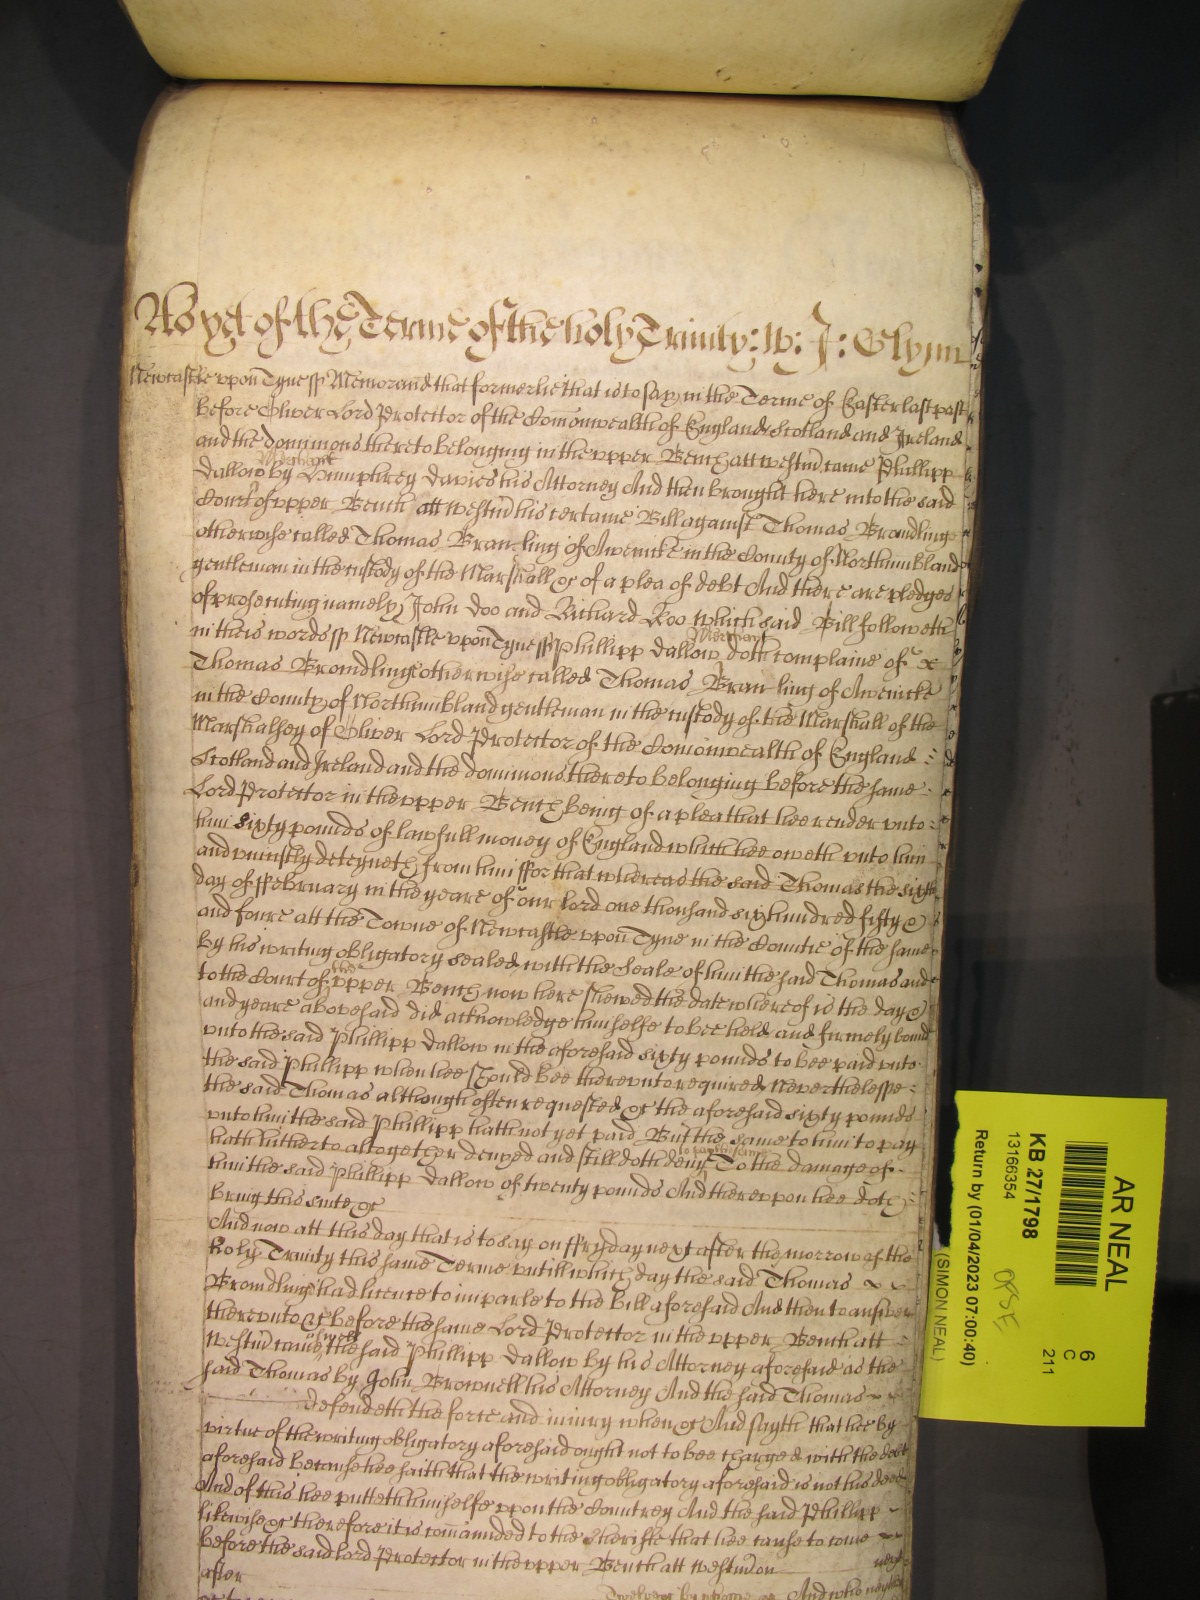 As yet of the Terme of the holy Trinity: W: J: Glynn
Newcastle upon Tyne ss Memorand that formerlie that is to say in the Terme of Easter last past
before Oliver Lord Protector of the Comonwealth of England Scotland and Ireland
and the dominions thereto belonging in the upper Bench att westm came Phillipp
Merchant
Dallow by Humphrey Davies his Attorney And then brought here into the said
Court of upper Bench att westm his certaine Bill against Thomas Bromdlinge
otherwise called Thomas Bran-ling of Awenicke in the County of Northumbland
gentleman in the custody of the Marshall &c of a plea of debt And there are pledges
of prosecuting namely John Doo and Richard Roo which said Bill followeth
in theis words ss Newcastle upon Tyne ss Phillipp Dallow Merchant doth complaine of x
Thomas Bromdlinge otherwise called Thomas Bran-ling of Awenicke
in the County of Northumbland gentleman in the custody of the Marshall of the
Marshalsey of Oliver Lord Protector of the Comonwealth of England :
Scotland and Ireland and the dominions thereto belonging before the same :
Lord Protector in the upper Bench being of a plea that hee render unto :
him sixty pounds of lawfull money of England which hee oweth unto him
and uniustly deteyneth from him ffor that whereas the said Thomas the sixth
day of ffebruary in the yeare of our lord one thousand six hundred fifty
and foure att the Towne of Newcastle upon Tyne in the Countie of the same
by his writing obligatory sealed with the Seale of him the said Thomas and
to the Court of the upper Bench now here shewed the date whereof is the day
and yeare abovesaid did acknowledge himselfe to bee held and firmely bound
unto the said Phillipp Dallow in the aforesaid sixty pounds to bee paid unto
the said Phillipp when hee should bee thereunto required Neverthelesse :
the said Thomas although often requested &c the aforesaid sixty pounds
unto him the said Phillipp hath not yet paid But the same to him to pay
hath hitherto altogether denyed and still doth deny to pay the same To the damage of -
him the said Phillipp Dallow of twenty pounds And thereupon hee doth
bring this suite &c
And now att this day that is to say on ffryday next after the morrow of the
holy Trinity this same Terme untill which day the said Thomas
Bromdlinge had licence to imparle to the Bill aforesaid And then to answer
thereunto &c before the same Lord Protector in the upper Bench att
westm came aswell the said Phillipp Dallow by his Attorney aforesaid as the
said Thomas by John Brownell his Attorney And the said Thomas
defendeth the force and iniury when &c And sayth that hee by
virtue of the writing obligatory aforesaid ought not to bee charged with the debt
aforesaid because hee saith that the writing obligatory aforesaid is not his deed
And of this hee putteth himselfe upon the Countrey And the said Phillipp
likewise &c therefore it is comanded to the Sheriffe that hee cause to come
before the said Lord Protector in the upper Bench att westm on next
after
Twelve &c by whome &c And who neyther
AR NEAL
KB 27/1798
13166354
Return by (01/04/2023 07:00:40)
(SIMON NEAL)
6
C
211